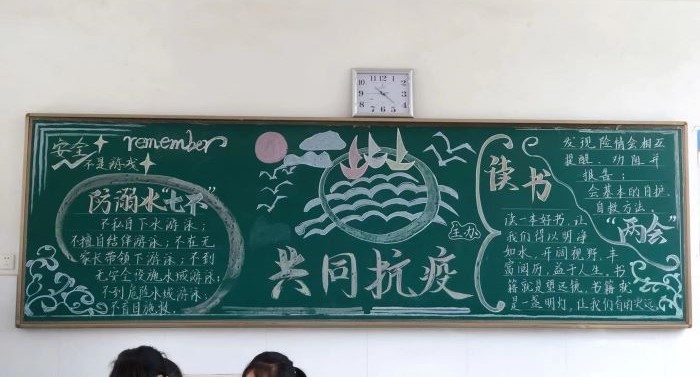 安全
不是游戏
remember
防溺水“七不”
不私自下水游泳；
不擅自结伴游泳；不在无
家长带领下游泳；不到
无安全设施水域游泳；
不到危险水域游泳；
不盲目施救。
共同抗疫
读书
读一本好书，让
我们得以明净
如水，开阔视野，丰
富阅历，益于人生。书
籍就是望远镜，书籍就
是一盏明灯，让我们看的更远。
发现险情会相互
提醒、劝阻并
报告；
会基本的自护、
自救方法。
“两会”
12
11
1
10
2
9
3
8
4
7
5
6